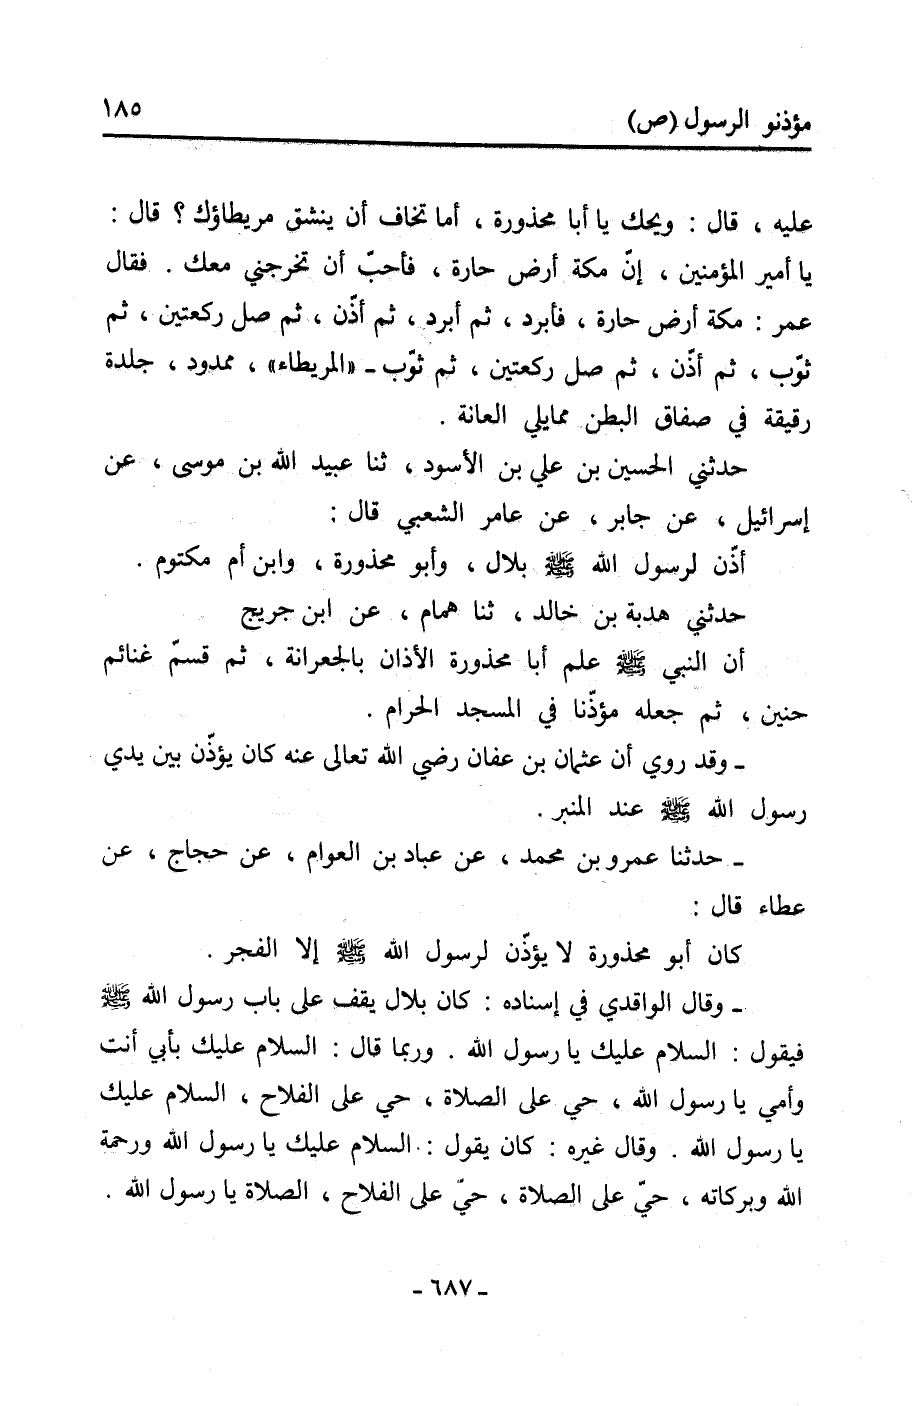 مؤذنو الرسول (ص)
١٨٥
عليه ، قال : ويحك يا أبا محذورة ، أما تخاف أن ينشق مريطاؤك ؟ قال :
يا أمير المؤمنين ، إنّ مكة أرض حارة ، فأحبّ أن تخرجني معك . فقال
عمر : مكة أرض حارة ، فأبرد ، ثم أبرد ، ثم أذّن ، ثم صل ركعتين ، ثم
ثوّب ، ثم أذّن ، ثم صل ركعتين ، ثم ثوّب ـ «المريطاء» ، ممدود ، جلدة
رقيقة في صفاق البطن ممايلي العانة .
حدثني الحسين بن علي بن الأسود ، ثنا عبيد الله بن موسى ، عن
إسرائيل ، عن جابر ، عن عامر الشعبي قال :
أذّن لرسول الله ﷺ بلال ، وأبو محذورة ، وابن أم مكتوم .
حدثني هدبة بن خالد ، ثنا همام ، عن ابن جريج
أن النبي ﷺ علم أبا محذورة الأذان بالجعرانة ، ثم قسمّ غنائم
حنين ، ثم جعله مؤذّنا في المسجد الحرام .
ـ وقد روي أن عثمان بن عفان رضي الله تعالى عنه كان يؤذّن بين يدي
رسول الله ﷺ عند المنبر .
ـ حدثنا عمرو بن محمد ، عن عباد بن العوام ، عن حجاج ، عن
عطاء قال :
كان أبو محذورة لا يؤذّن لرسول الله ﷺ إلا الفجر .
ـ وقال الواقدي في إسناده : كان بلال يقف على باب رسول الله ﷺ
فيقول : السلام عليك يا رسول الله . وربما قال : السلام عليك بأبي أنت
وأمي يا رسول الله ، حي على الصلاة ، حي على الفلاح ، السلام عليك
يا رسول الله . وقال غيره : كان يقول : السلام عليك يا رسول الله ورحمة
الله وبركاته ، حيّ على الصلاة ، حيّ على الفلاح ، الصلاة يا رسول الله .
ـ ٦٨٧ ـ